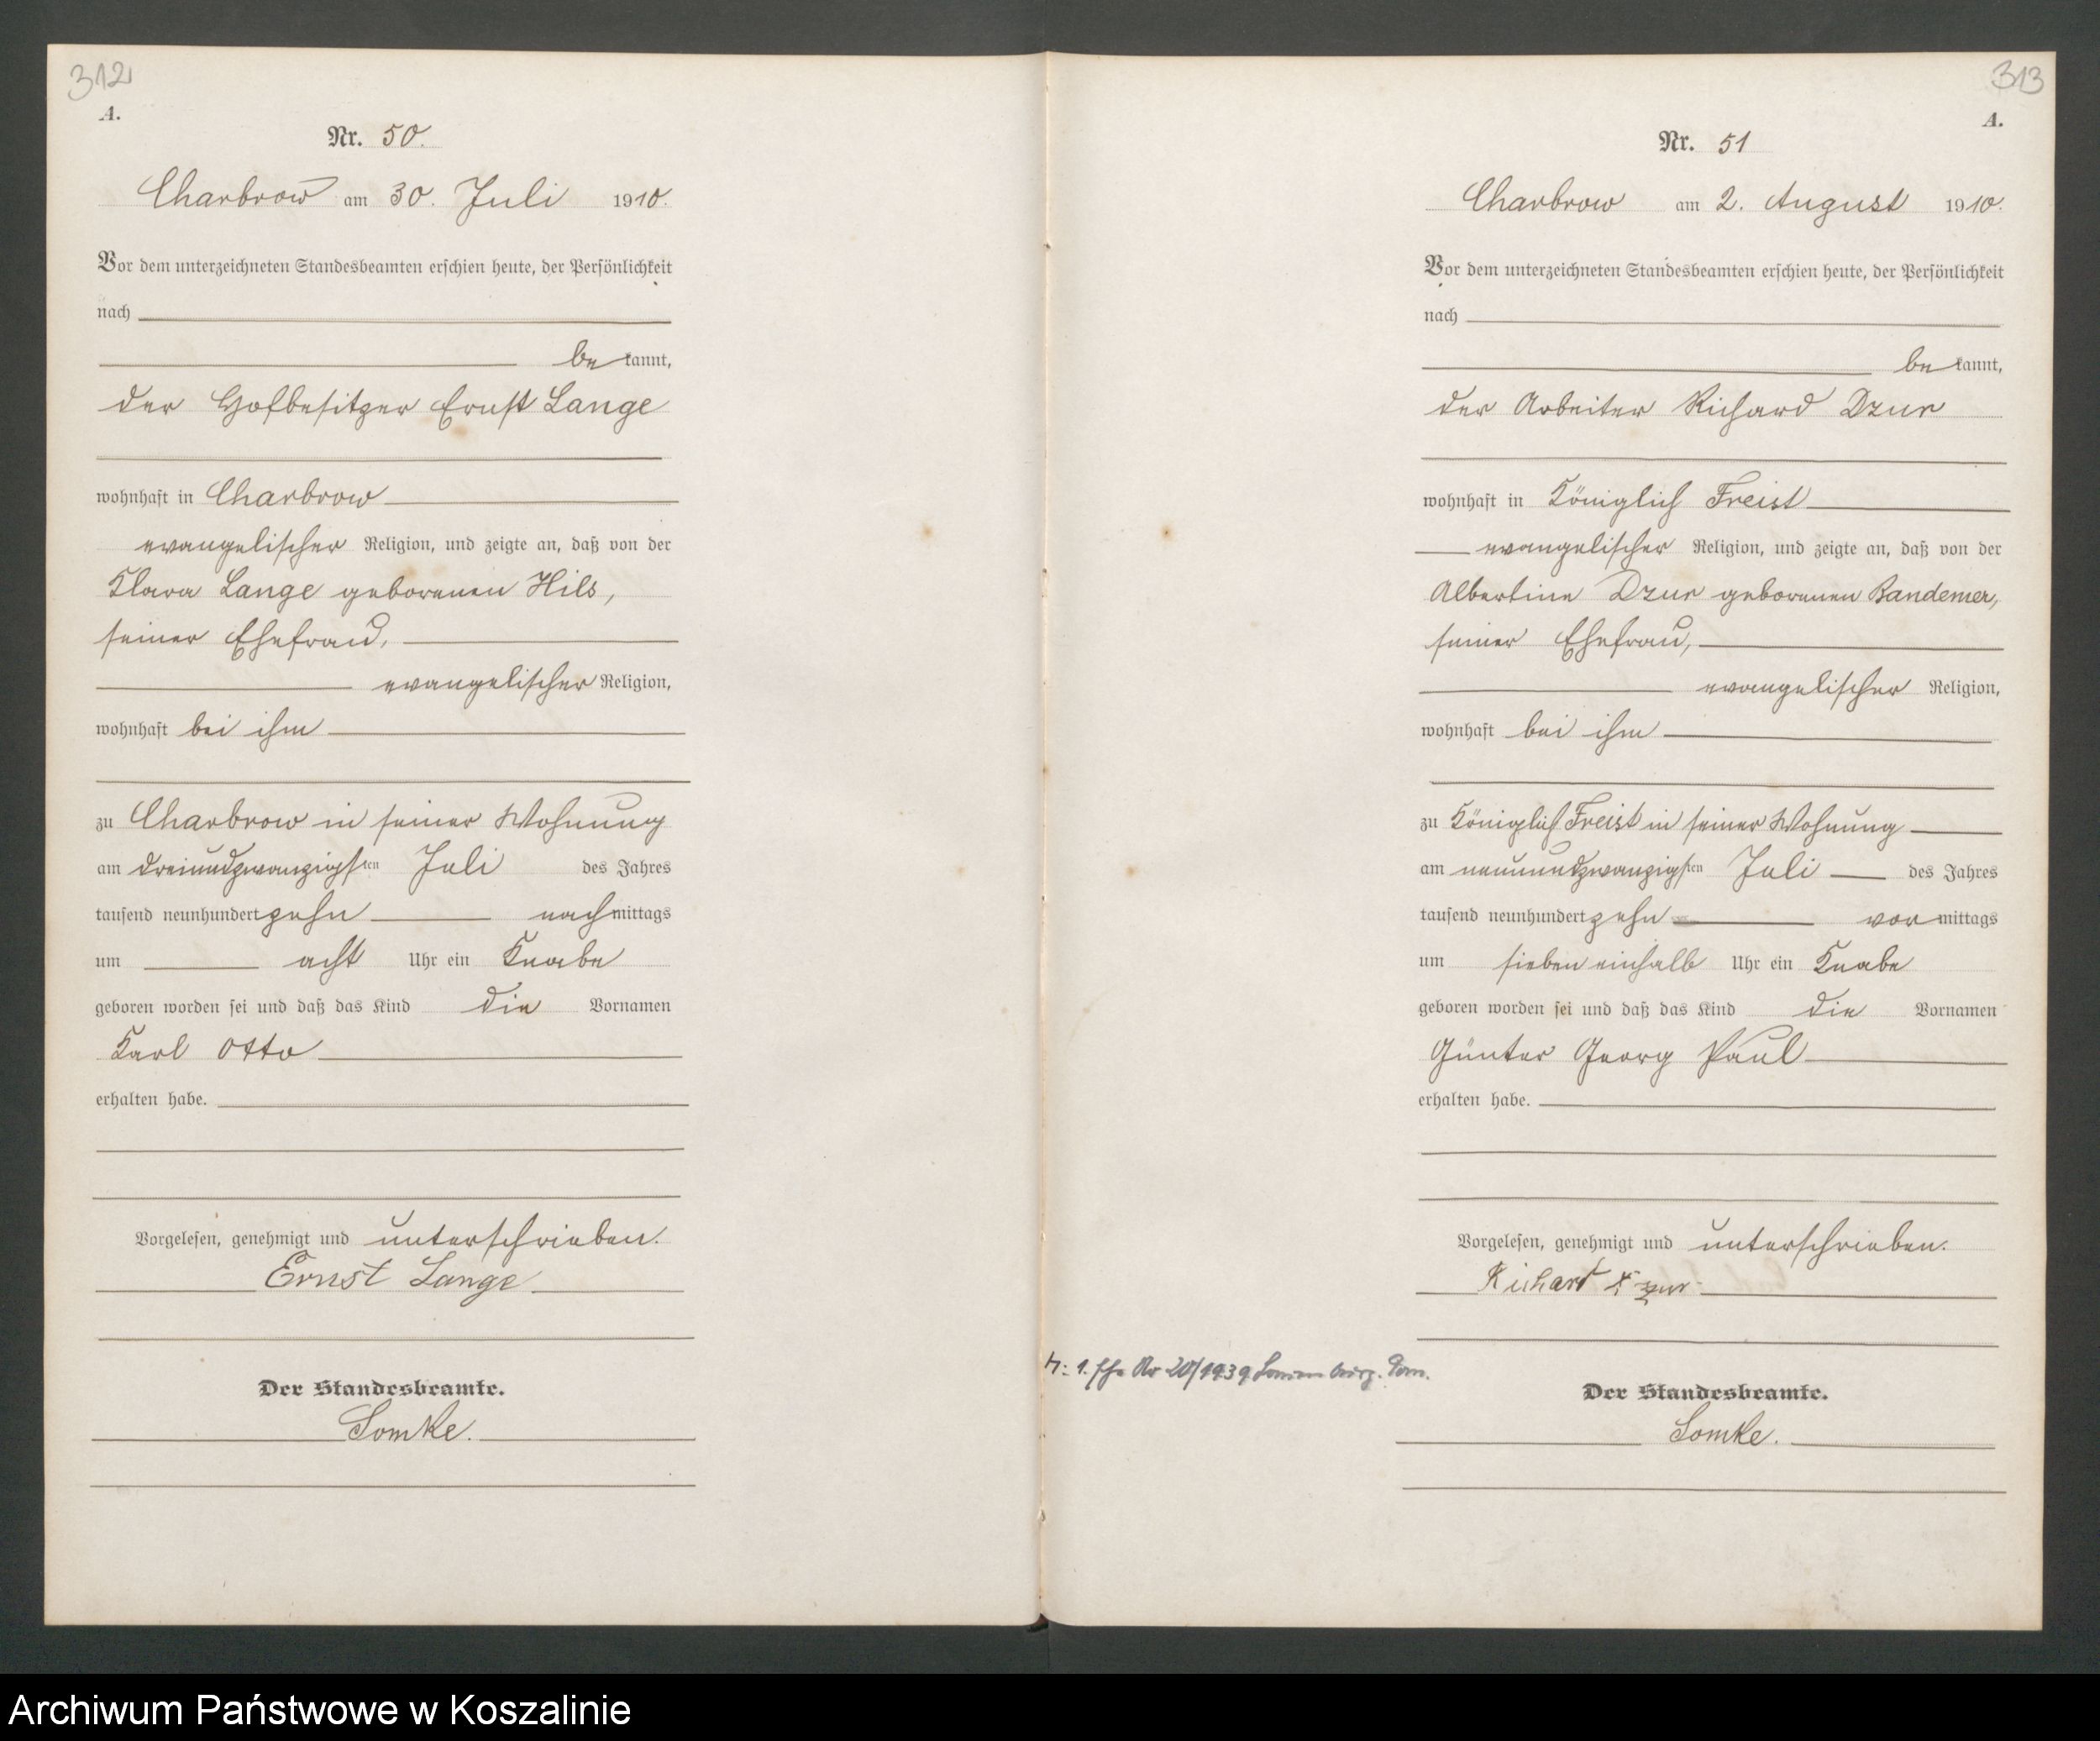 312
A.
Nr. 50.
Charbrow am 30. Juli 1910.
Vor dem unterzeichneten Standesbeamten erschien heute, der Persönlichkeit
nach
be kannt,
der Hofbesitzer Ernst Lange
wohnhaft in Charbrow
evangelischer Religion, und zeigte an, daß von der
Klara Lange geborenen Hils,
seiner Ehefrau,
evangelischer Religion,
wohnhaft bei ihm
zu Charbrow in seiner Wohnung
am dreiundzwanzigsten Juli des Jahres
tausend neunhundert zehn nachmittags
um acht Uhr ein Knabe
geboren worden sei und daß das Kind die Vornamen
Karl Otto
erhalten habe.
Vorgelesen, genehmigt und unterschrieben.
Ernst Lange
Der Standesbeamte.
Somke.
313
A.
Nr. 51
Charbrow am 2. August 1910.
Vor dem unterzeichneten Standesbeamten erschien heute, der Persönlichkeit
nach
be kannt,
der Arbeiter Richard Dzur
wohnhaft in Königlich Freist
evangelischer Religion, und zeigte an, daß von der
Albertine Dzur geborenen Bandemer,
seiner Ehefrau,
evangelischer Religion,
wohnhaft bei ihm
zu Königlich Freist in seiner Wohnung
am neunundzwanzigsten Juli des Jahres
tausend neunhundert zehn vormittags
um sieben einhalb Uhr ein Knabe
geboren worden sei und daß das Kind die Vornamen
Günter Georg Paul
erhalten habe.
Vorgelesen, genehmigt und unterschrieben.
Richard Dzur
1. Nr 20/1939 Pom.
Der Standesbeamte.
Somke.
Archiwum Państwowe w Koszalinie